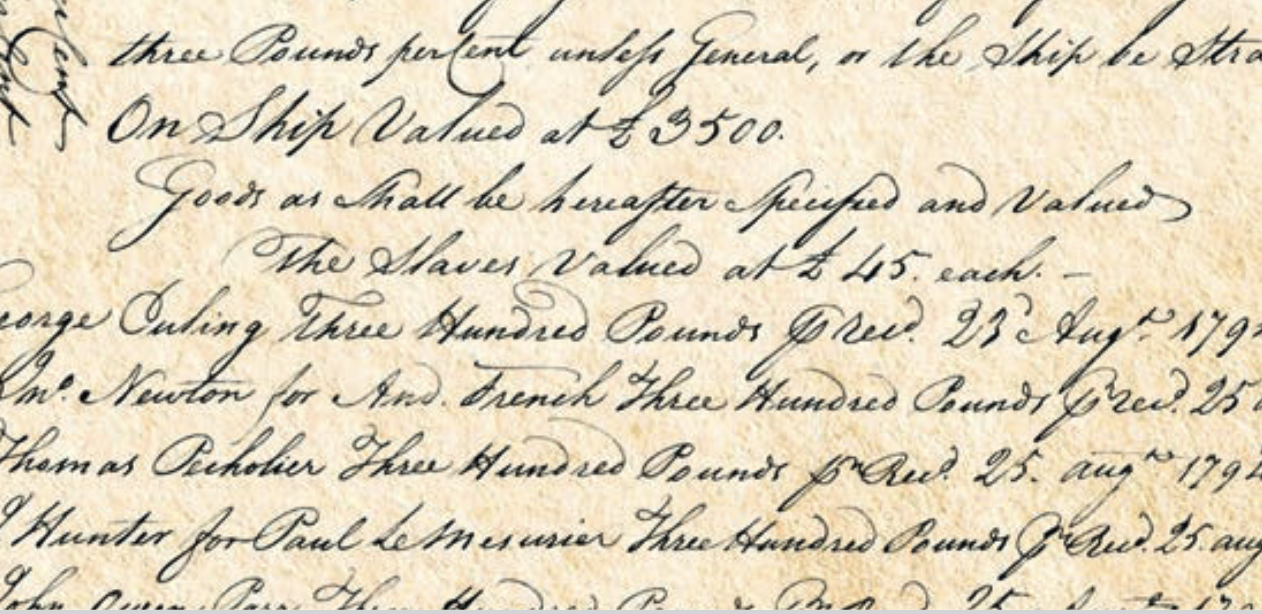 three Pounds per Cent unless General, or the Ship be Stra
On Ship Valued at £3500.
Goods as Shall be hereafter Specified and Valued
The Slaves Valued at £45. each. –
eorge Curling Three Hundred Pounds prec'd. 23d Augt. 179
Jno. Newton for And. French Three Hundred Pounds prec'd. 25
Thomas Pecholier Three Hundred Pounds pm Rec'd. 25. augt. 179
Hunter for Paul LeMesurier Three Hundred Pounds pm Rec'd. 25. aug
John Owen Parr Three Hundred